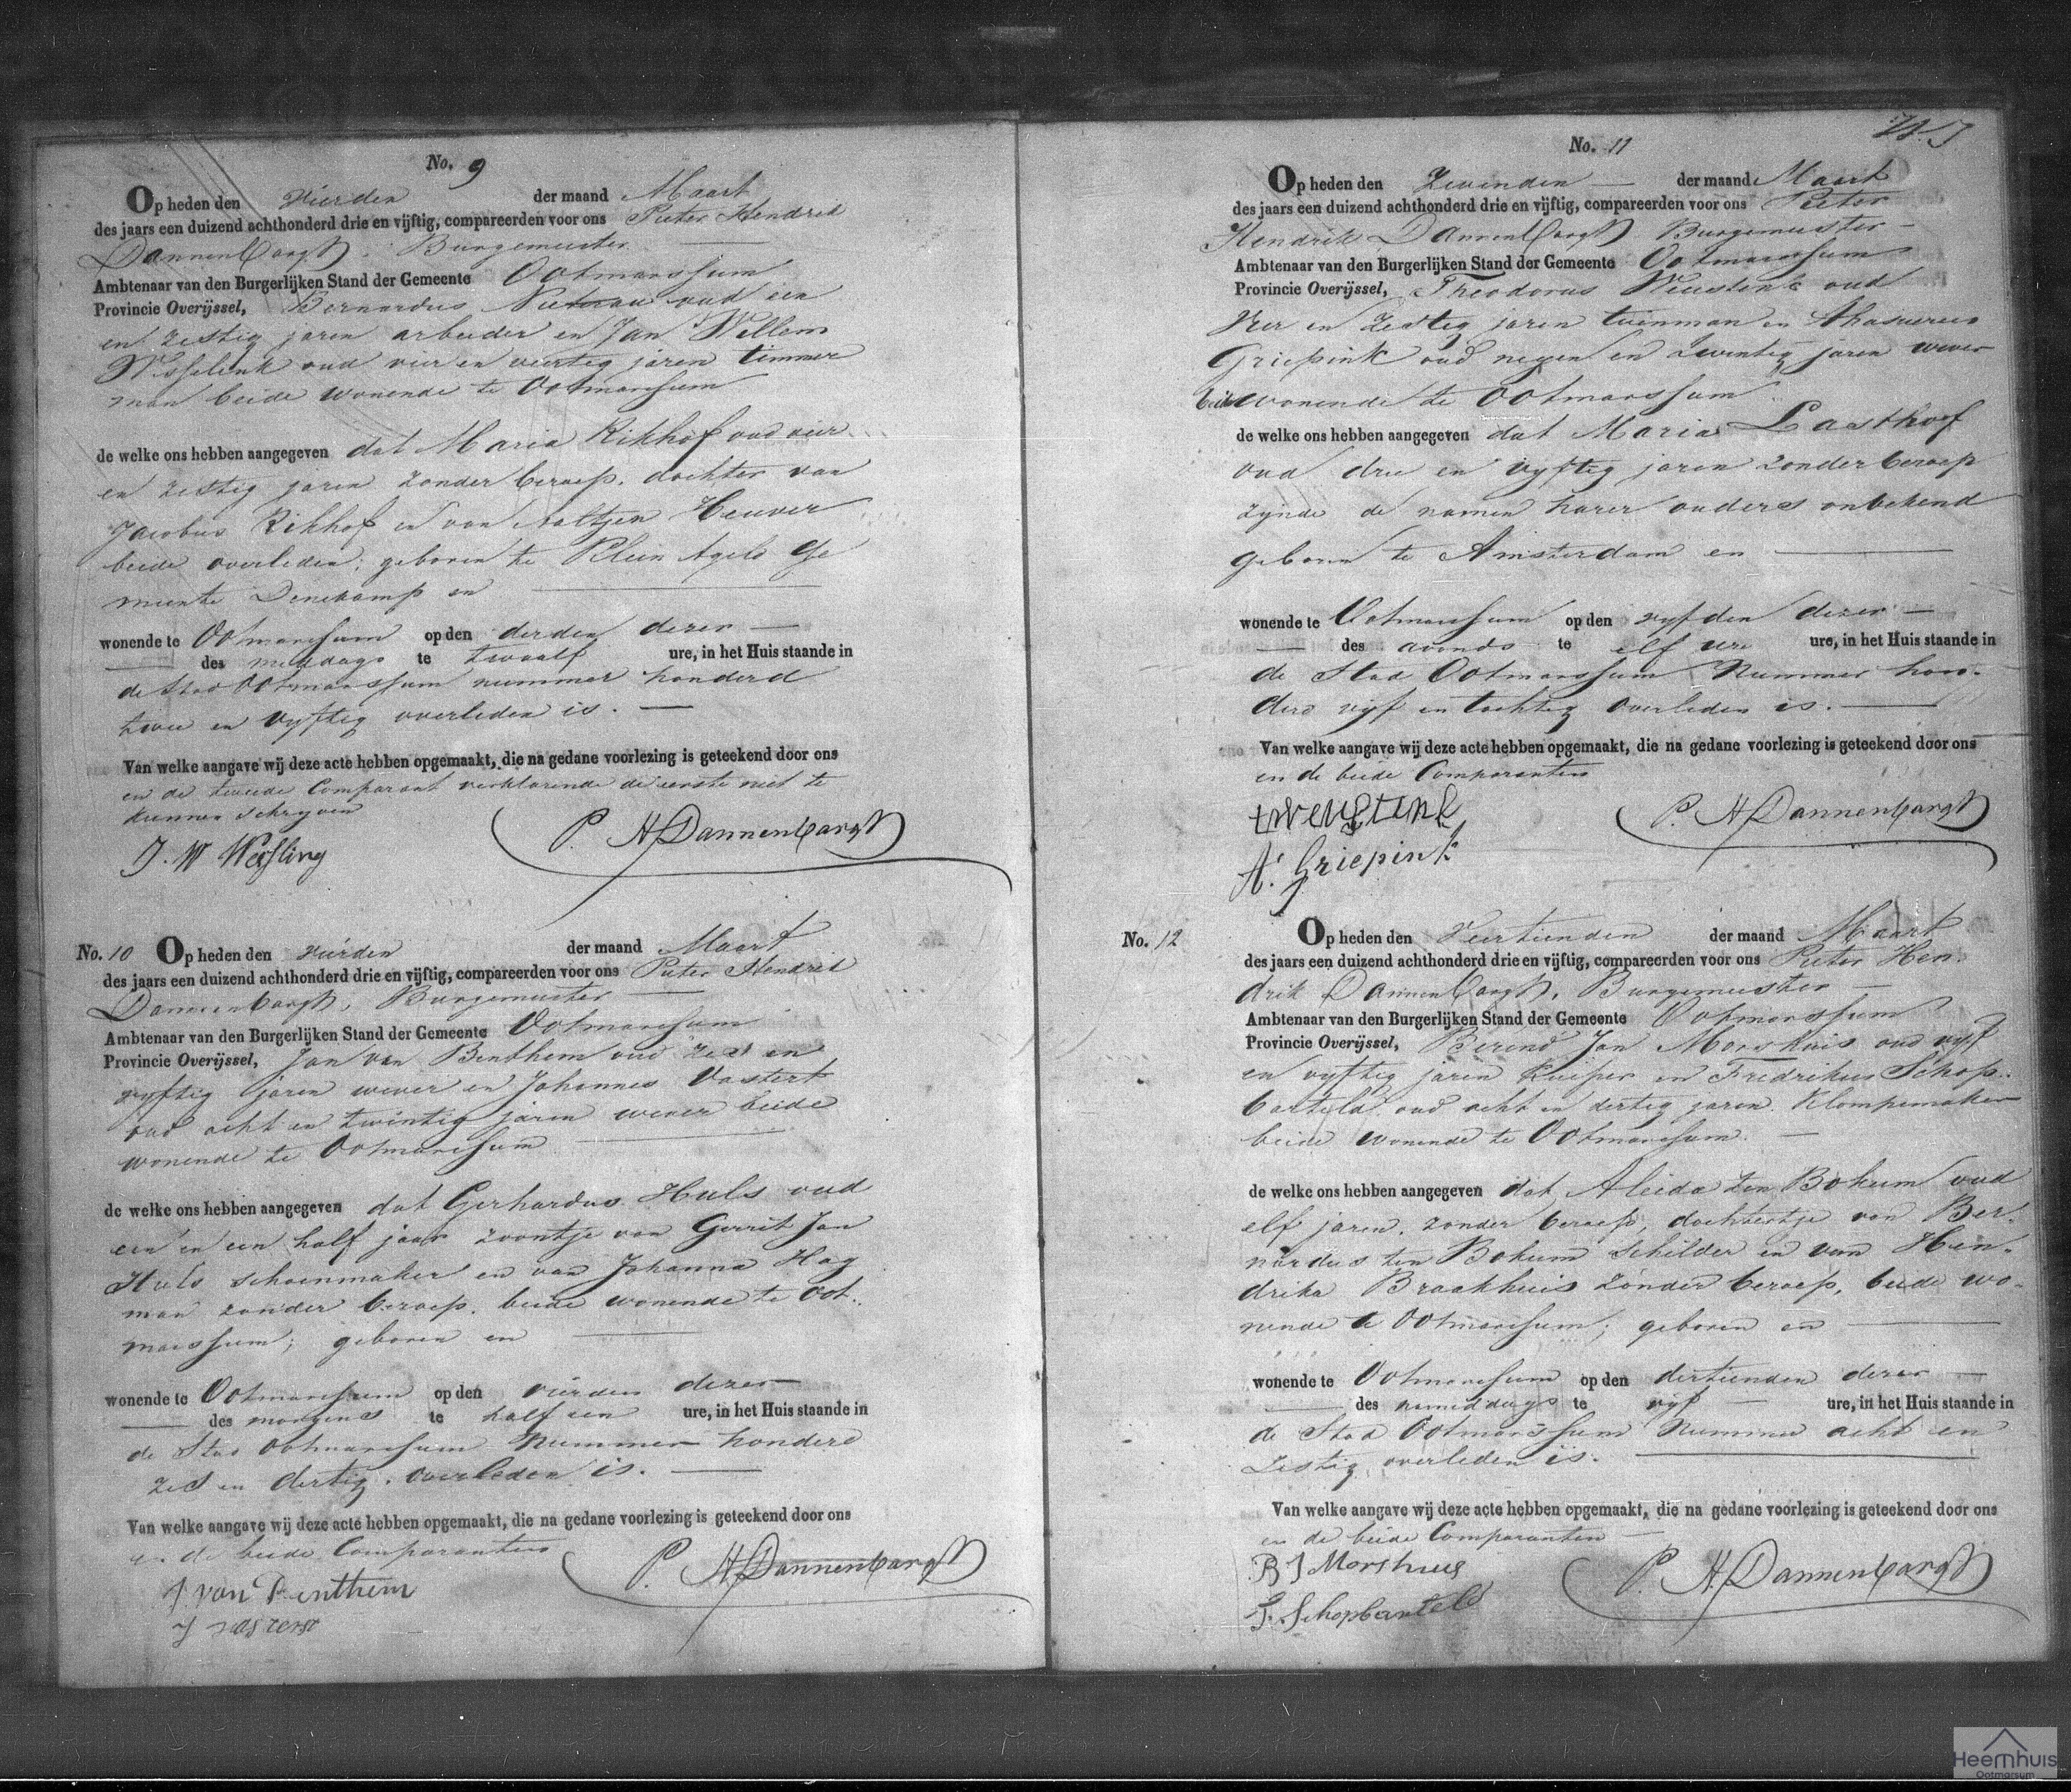 No. 9
Op heden den vierden der maand Maart
des jaars een duizend achthonderd drie en vijftig, compareerden voor ons Pieter Hendrik
Dannenbargh, Burgemeester
Ambtenaar van den Burgerlijken Stand der Gemeente Ootmarssum
Provincie Overijssel, Bernardus oud een
en zestig jaren arbeider en Jan Willem
Wesselink oud vier en veertig jaren timmer
man beide wonende te Ootmarssum
de welke ons hebben aangegeven dat Maria Rikhof oud vier
en zestig jaren zonder beroep, dochter van
Jacobus Rikhof en van Aaltjen Heuver
beide overleden, geboren te Klein Agelo Ge
meente Denekamp en
wonende te Ootmarssum op den derden dezer
des middags te twaalf ure, in het Huis staande in
de Stad Ootmarssum nummer honderd
twee en vyftig overleden is.
Van welke aangave wij deze acte hebben opgemaakt, die na gedane voorlezing is geteekend door ons
en de tweede Comparant verklarende de eerste niet te
kunnen schryven
J. W Wesling P. H Dannenbargh
No. 10 Op heden den vierden der maand Maart
des jaars een duizend achthonderd drie en vijftig, compareerden voor ons Pieter Hendrik
Dannenbargh, Burgemeester
Ambtenaar van den Burgerlijken Stand der Gemeente Ootmarssum
Provincie Overijssel, Jan van Benthem oud zes en
vyftig jaren wever en Johannes Vastert
oud acht en twintig jaren wever beide
wonende te Ootmarssum
de welke ons hebben aangegeven dat Gerhardus Huls oud
een en een half jaar zoontje van Gerrit Jan
Huls schoenmaker en van Johanna Hag
man zonder beroep, beide wonende te Oot-
marssum; geboren en
wonende te Ootmarssum op den vierden dezer
des morgens te half een ure, in het Huis staande in
de Stad Ootmarssum Nummer honderd
zes en dertig, overleden is.
Van welke aangave wij deze acte hebben opgemaakt, die na gedane voorlezing is geteekend door ons
en de beide Comparanten
J. van Benthem P. H Dannenbargh
J Vastert
No. 11
Op heden den Zevenden der maand Maart
des jaars een duizend achthonderd drie en vijftig, compareerden voor ons Pieter
Hendrik Dannenbargh Burgemeester
Ambtenaar van den Burgerlijken Stand der Gemeente Ootmarssum
Provincie Overijssel, Theodorus Weustink oud
Vier en zestig jaren tuinman en Ahasuerus
Griepink oud negen en twintig jaren wever
beide wonende te Ootmarssum
de welke ons hebben aangegeven dat Maria Lasthof
oud drie en vyftig jaren zonder beroep
zynde de namen harer ouders onbekend
geboren te Amsterdam en
wonende te Ootmarssum op den vyfden dezer
des avonds te elf ure ure, in het Huis staande in
de Stad Ootmarssum Nummer hon-
derd vyf en tachtig overleden is.
Van welke aangave wij deze acte hebben opgemaakt, die na gedane voorlezing is geteekend door ons
en de beide Comparanten
P. H Dannenbargh
A. Griepink
No. 12 Op heden den Veertienden der maand Maart
des jaars een duizend achthonderd drie en vijftig, compareerden voor ons Pieter Hen-
drik Dannenbargh, Burgemeester
Ambtenaar van den Burgerlijken Stand der Gemeente Ootmarssum
Provincie Overijssel, Berend Jan Morshuis oud vyf
en vyftig jaren kuiper en Fredrikus Schop-
barteld oud acht en dertig jaren Klompemaker
beide wonende te Ootmarssum.
de welke ons hebben aangegeven dat Aleida ten Bokum oud
elf jaren, zonder beroep, dochtertje van Ber-
nardus ten Bokum schilder en van Hen-
drika Braakhuis zonder beroep, beide wo-
nende te Ootmarssum; geboren en
wonende te Ootmarssum op den dertienden dezer
des namiddags te vyf ure, in het Huis staande in
de Stad Ootmarssum Nummer acht en
zestig overleden is.
Van welke aangave wij deze acte hebben opgemaakt, die na gedane voorlezing is geteekend door ons
en de beide Comparanten
B J Morshuis P. H. Dannenbargh
F. Schopbarteld
Heemhuis
Ootmarsum